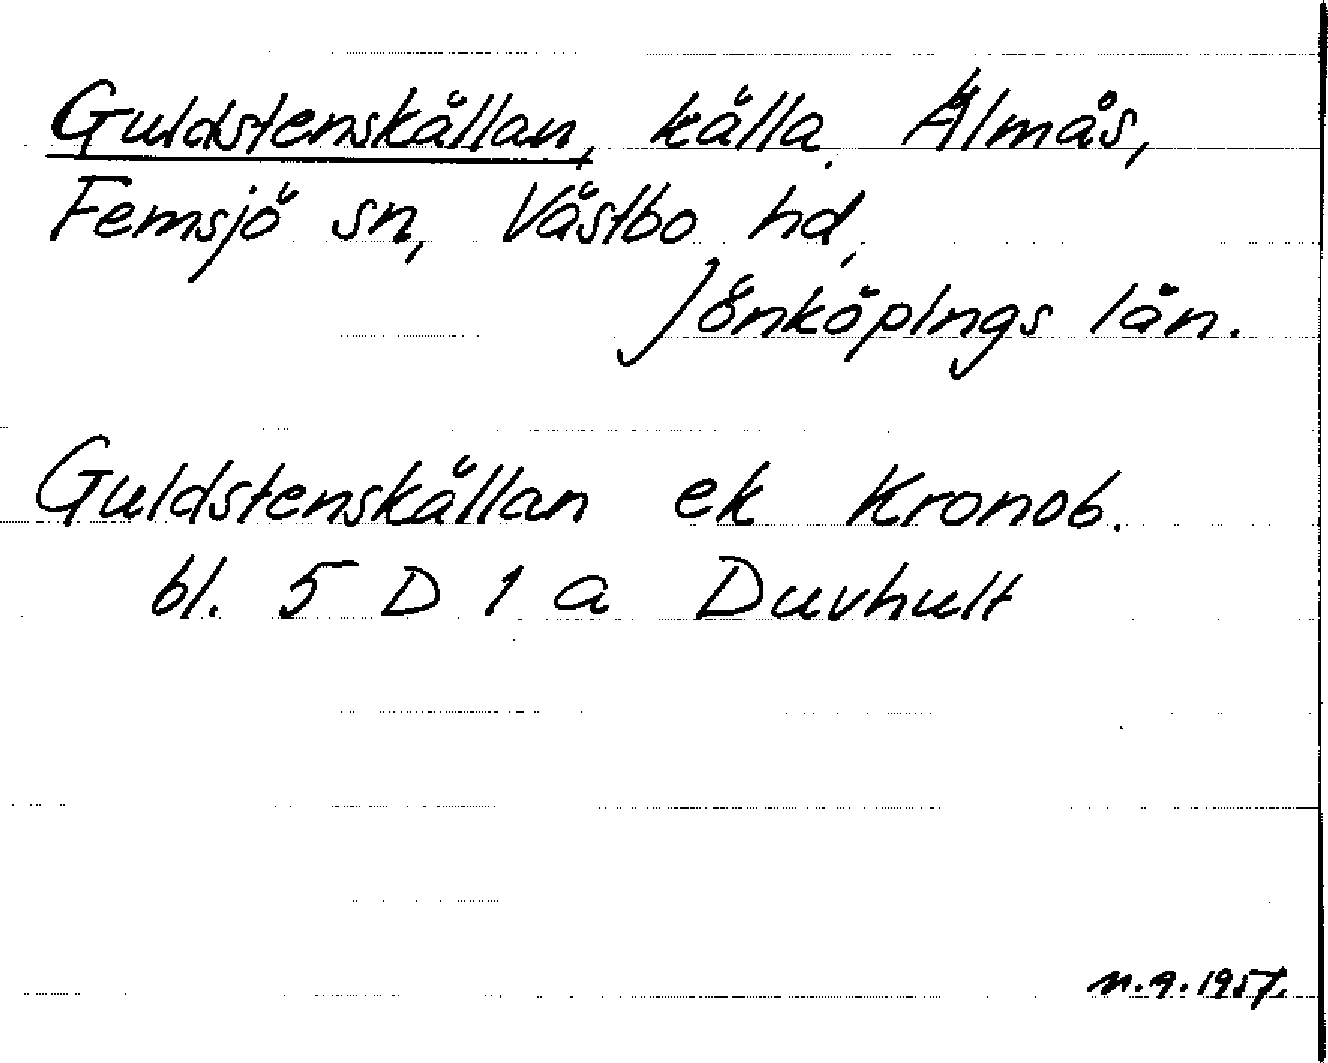 Guldstenskällan, källa, Älmås,
Femsjö sn, Västbo hd,
Jönköpings län.
Guldstenskällan ek Kronob.
bl. 5 D 1 a Duvhult
n.a. 1957.